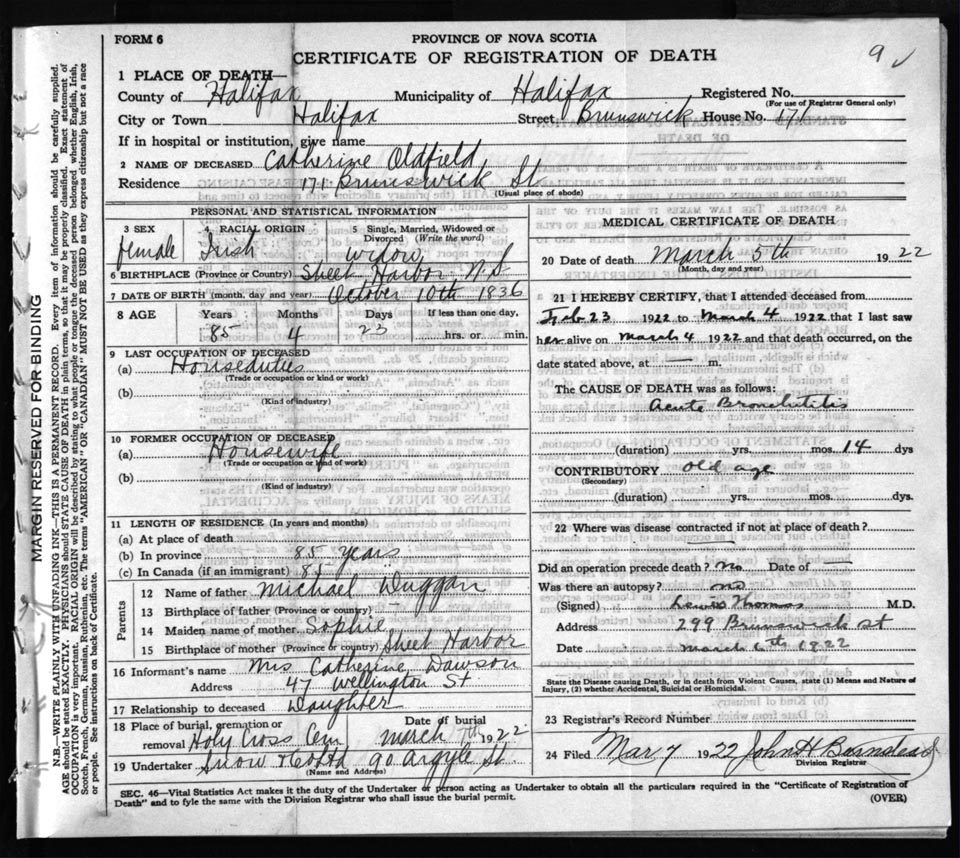 FORM 6
PROVINCE OF NOVA SCOTIA
CERTIFICATE OF REGISTRATION OF DEATH
9 ✓
1 PLACE OF DEATH—
County of Halifax Municipality of Halifax Registered No.
(For use of Registrar General only)
City or Town Halifax Street, Brunswick House No. 171
If in hospital or institution, give name
2 NAME OF DECEASED Catherine Oldfield
Residence 171 Brunswick St.
(Usual place of abode)
PERSONAL AND STATISTICAL INFORMATION
3 SEX 4 RACIAL ORIGIN 5 Single, Married, Widowed or Divorced (Write the word)
female Irish Widow
6 BIRTHPLACE (Province or Country) Sheet Harbor N.S
7 DATE OF BIRTH (month, day and year) October 10th 1836
8 AGE Years Months Days If less than one day,
85 4 23 hrs. or min.
9 LAST OCCUPATION OF DECEASED
(a) Houseduties
(Trade or occupation or kind of work)
(b)
(Kind of industry)
10 FORMER OCCUPATION OF DECEASED
(a) Housewife
(Trade or occupation or kind of work)
(b)
(Kind of industry)
11 LENGTH OF RESIDENCE (In years and months)
(a) At place of death
(b) In province 85 years
(c) In Canada (if an immigrant) 85
Parents
12 Name of father Michael Duggan
13 Birthplace of father (Province or country)
14 Maiden name of mother Sophie
15 Birthplace of mother (Province or country) Sheet Harbor
16 Informant's name Mrs Catherine Dawson
Address 47 Wellington St
17 Relationship to deceased Daughter
18 Place of burial, cremation or removal Holy Cross Cem Date of burial March 7th 1922
19 Undertaker Snow 90 Argyle St.
(Name and Address)
MEDICAL CERTIFICATE OF DEATH
20 Date of death March 5th 1922
(Month, day and year)
21 I HEREBY CERTIFY, that I attended deceased from
Feb 23 1922 to March 4 1922 that I last saw
her alive on March 4 1922 and that death occurred, on the
date stated above, at
The CAUSE OF DEATH was as follows:
Acute Bronchitis
(duration) yrs. mos. 14 dys
CONTRIBUTORY old age
(Secondary)
(duration) yrs. mos. dys.
22 Where was disease contracted if not at place of death?
Did an operation precede death? No Date of —
Was there an autopsy? no
(Signed) Lewis Thomas M.D.
Address 299 Brunswick st
Date March 6th 1922
State the Disease causing Death, or in death from Violent Causes, state (1) Means and Nature of
Injury, (2) whether Accidental, Suicidal or Homicidal.
23 Registrar's Record Number
24 Filed Mar 7 1922 John H Barnstead
Division Registrar
SEC. 46—Vital Statistics Act makes it the duty of the Undertaker or person acting as Undertaker to obtain all the particulars required in the "Certificate of Registration of
Death" and to fyle the same with the Division Registrar who shall issue the burial permit.
(OVER)
MARGIN RESERVED FOR BINDING
N.B.—WRITE PLAINLY WITH UNFADING INK—THIS IS A PERMANENT RECORD. Every item of information should be carefully supplied.
AGE should be stated EXACTLY. PHYSICIANS should STATE CAUSE OF DEATH in plain terms, so that it may be properly classified. Exact statement of
OCCUPATION is very important. RACIAL ORIGIN will be described by stating to what people or tongue the deceased person belonged whether English, Irish,
Scotch, French, German, Russian, Ruthenian, etc. The terms "AMERICAN" OR "CANADIAN" MUST NOT BE USED as they express citizenship but not a race
or people. See instructions on back of Certificate.